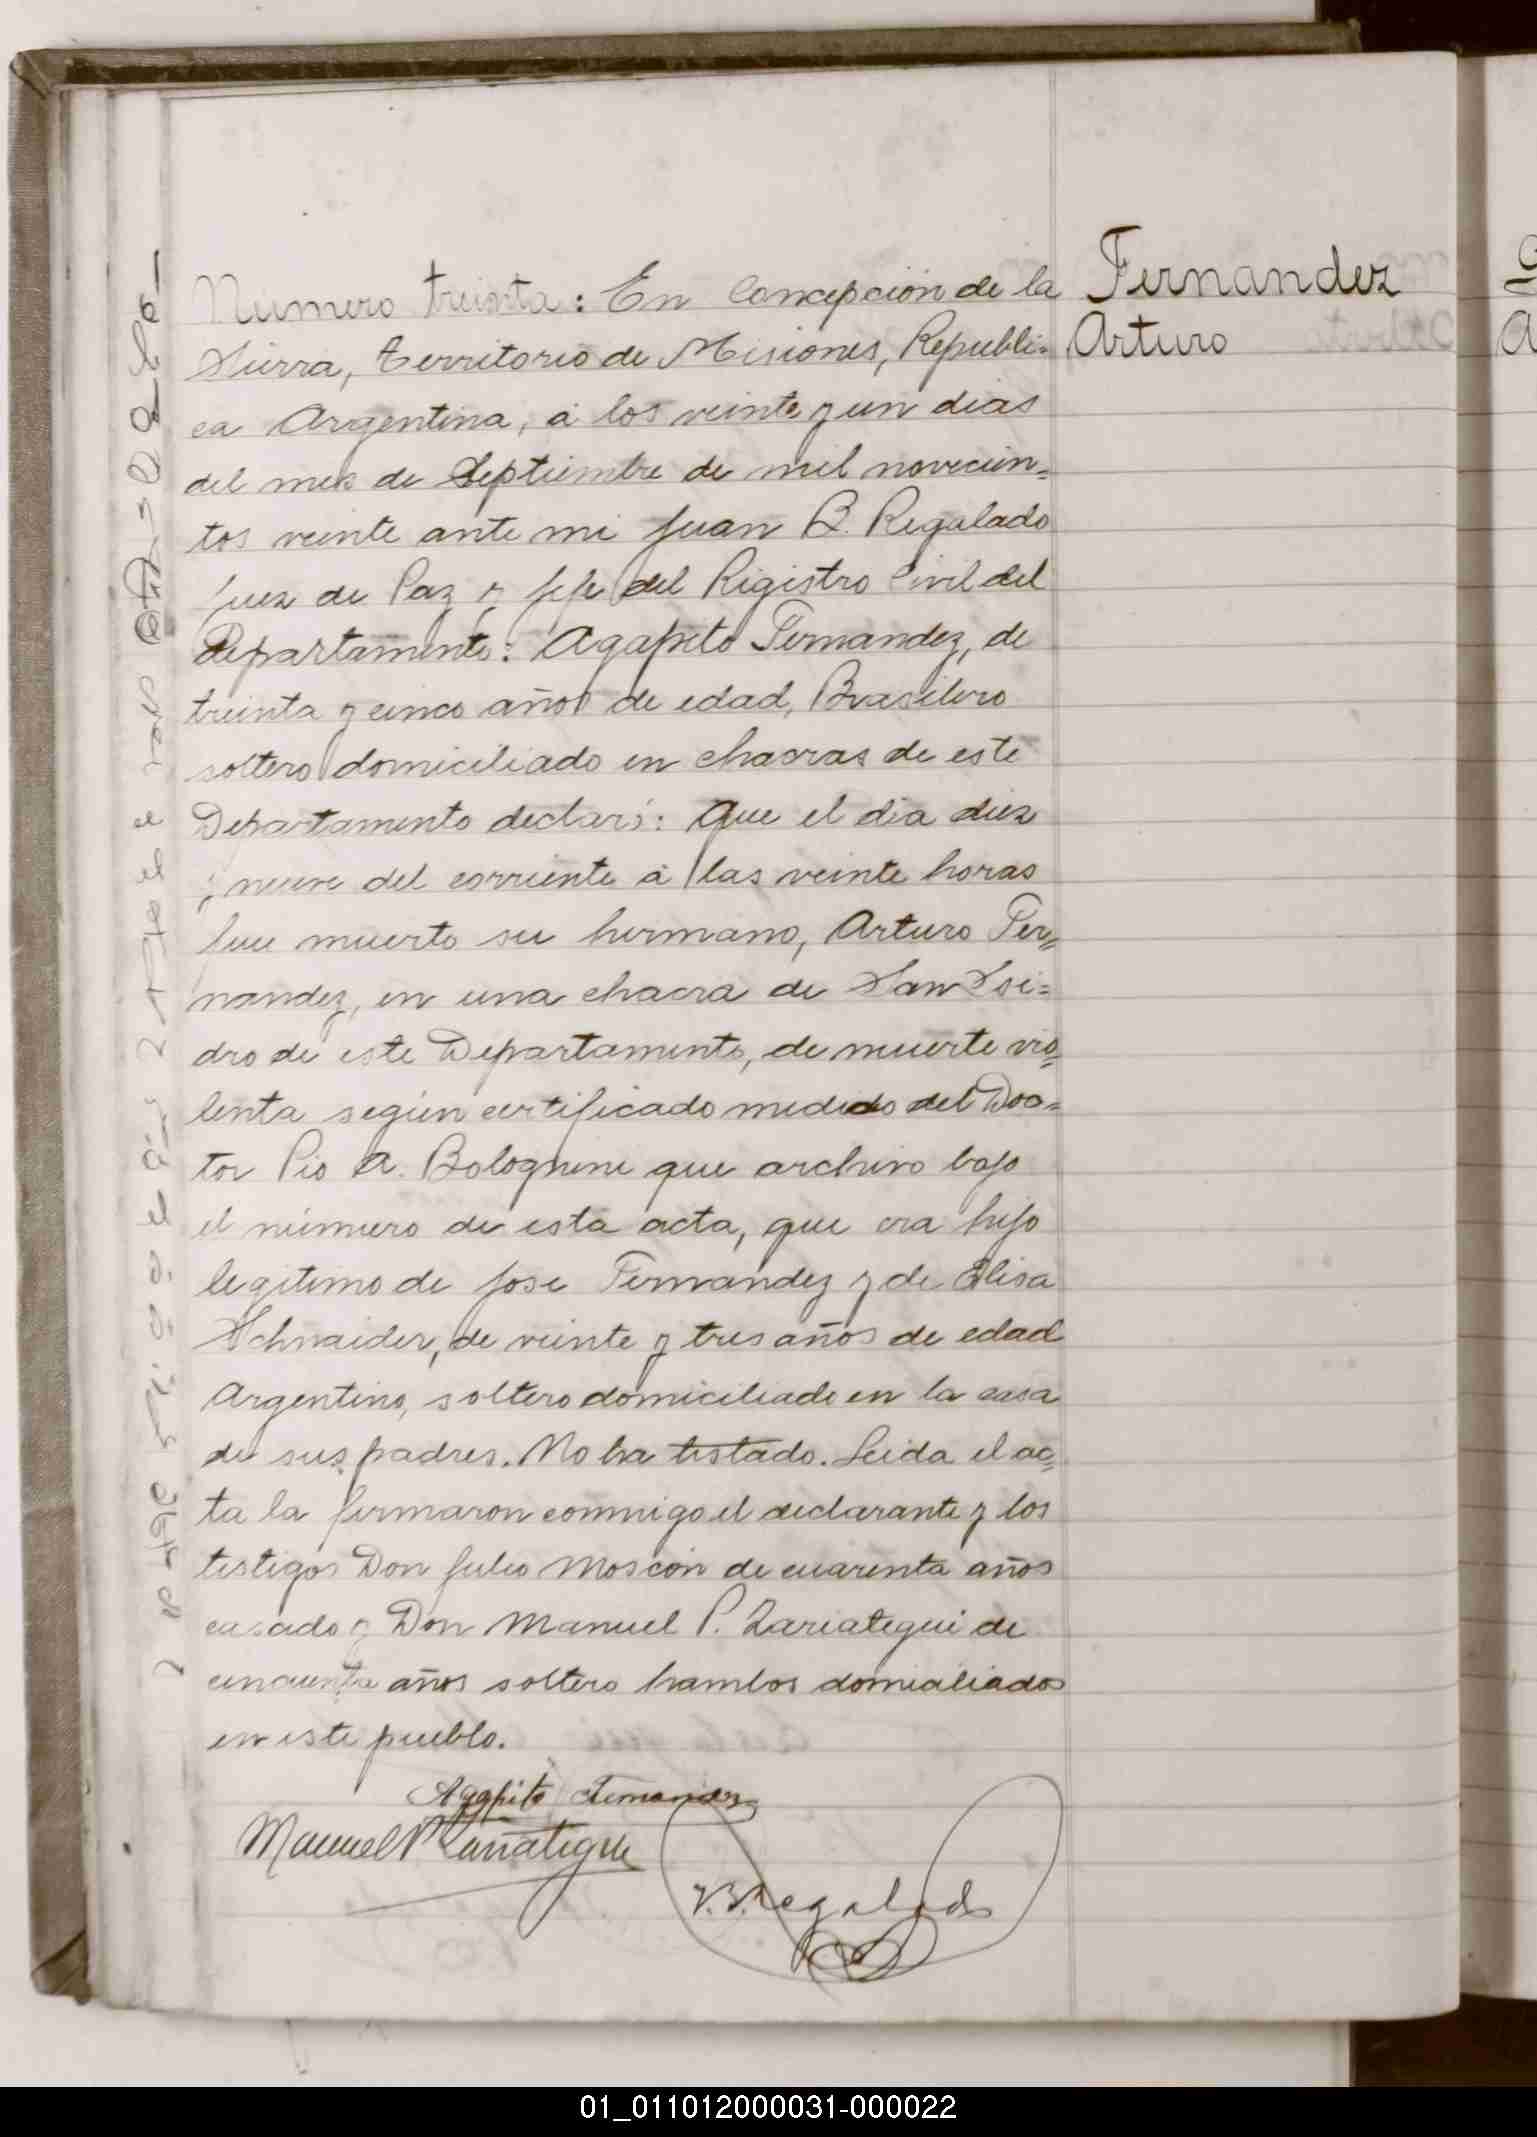 Numero treinta: En Concepción de la
Sierra, territorio de Misiones, Republi=
ca Argentina, á los veinte y un dias
del mes de Septiembre de mil novecien=
tos veinte ante mi Juan B. Regalado
Juez de Paz y Jefe del Registro Civil del
Departamento: Agapito Fernandez, de
treinta y cinco años de edad, Brasilero
soltero domiciliado en chacras de este
Departamento declaró: Que el dia diez
y nueve del corriente á las veinte horas
fue muerto su hermano, Arturo Fer=
nandez, en una chacra de San Isi=
dro de este Departamento, de muerte vio=
lenta según certificado medico del Doc=
tor Pio A. Bolognini que archivo bajo
el número de esta acta, que era hijo
legitimo de Jose Fernandez y de Elisa
Schnaider, de veinte y tres años de edad
Argentino, soltero domiciliado en la casa
de sus padres. No ha testado. Leida el ac=
ta la firmaron conmigo el declarante y los
testigos Don Julio Moscón de cuarenta años
casado y Don Manuel P. Zariategui de
cincuenta años soltero hambos domialiados
en este pueblo.
Agapito Fernandez
Manuel P. Zariategui
J.B. Regalado
Fernandez
Arturo
01_011012000031-000022